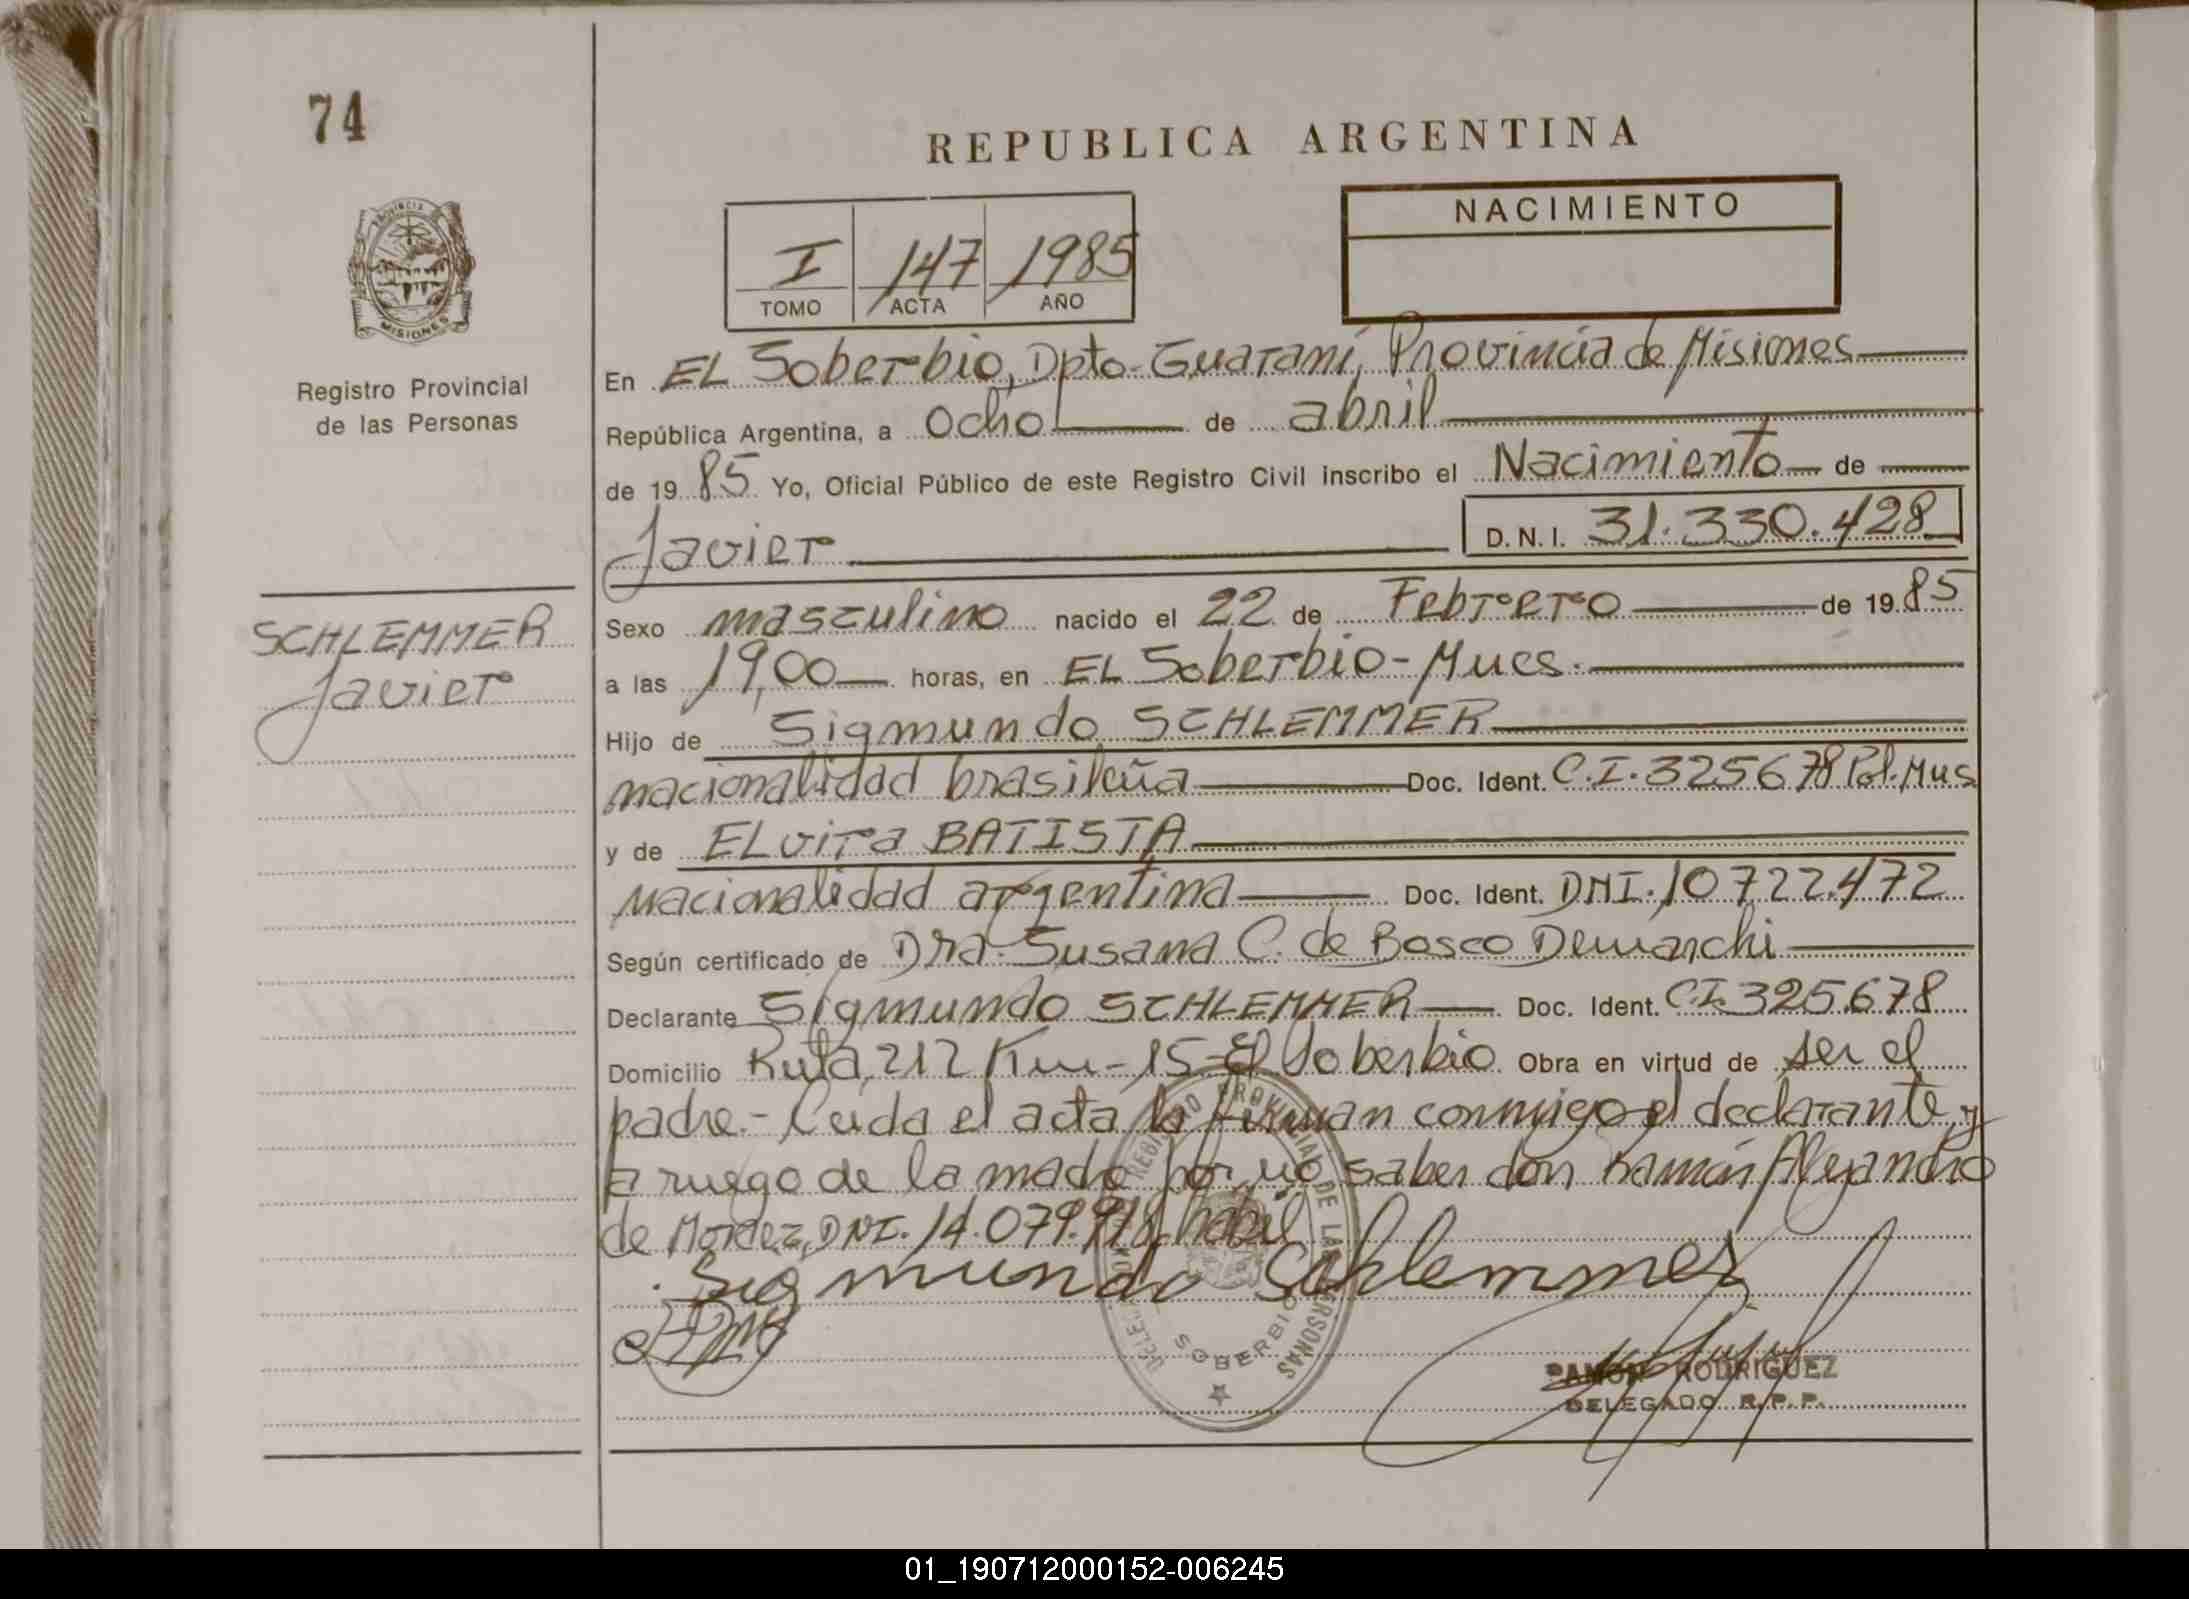 74
REPUBLICA ARGENTINA
PROVINCIA DE
MISIONES
Registro Provincial
de las Personas
I 147 1985
TOMO ACTA AÑO
NACIMIENTO
En EL Soberbio, Dpto-Guaraní, Provincia de Misiones
República Argentina, a ocho de abril
de 1985 Yo, Oficial Público de este Registro Civil inscribo el Nacimiento de
Javier D.N.I. 31.330.428
SCHLEMMER
Javier
Sexo masculino nacido el 22 de Febrero de 1985
a las 19,00 horas, en EL Soberbio-Mnes.
Hijo de Sigmundo SCHLEMMER
nacionalidad brasileña Doc. Ident. C.I. 325678 Pol. Mns
y de ELvira BATISTA
nacionalidad argentina Doc. Ident. DNI. 10.722.472
Según certificado de Dra. Susana C. de Bosco Demarchi
Declarante Sigmundo SCHLEMMER Doc. Ident. C.I. 325.678
Domicilio Ruta 212 Km-15-El Soberbio Obra en virtud de ser el
padre.- Leida el acta la firman conmigo el declarante, y
a ruego de la madre por no saber don Ramón Alejandro
de DNI. 14.079.918, hábil
Sigmundo Schlemmer
REGISTRO PROVINCIAL DE LAS PERSONAS
SOBERBIO
RAMON RODRIGUEZ
DELEGADO R.P.P.
01_190712000152-006245